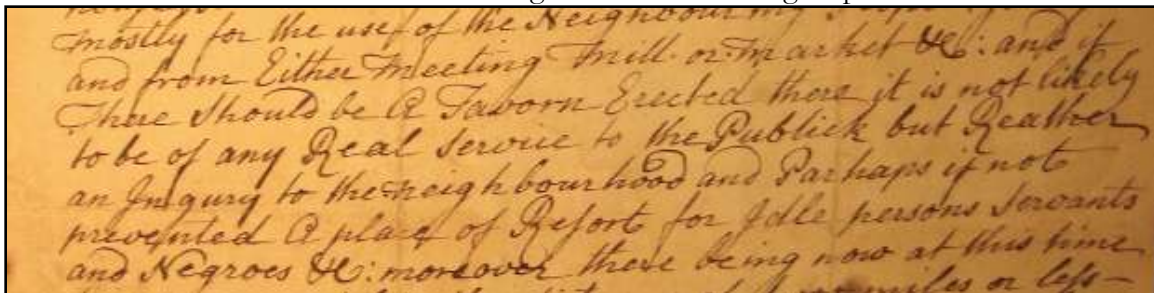 mostly for the use of the Neighbouring
and from Either Meeting Mill or Market &C: and if
There Should be A Tavorn Erected there it is not likely
to be of any Real Service to the Publick but Reather
an Ingury to the neighbourhood and Parhaps if not
prevented A place of Resort for Idle persons Servants
and Negroes &C: moreover there being now at this time
miles or less